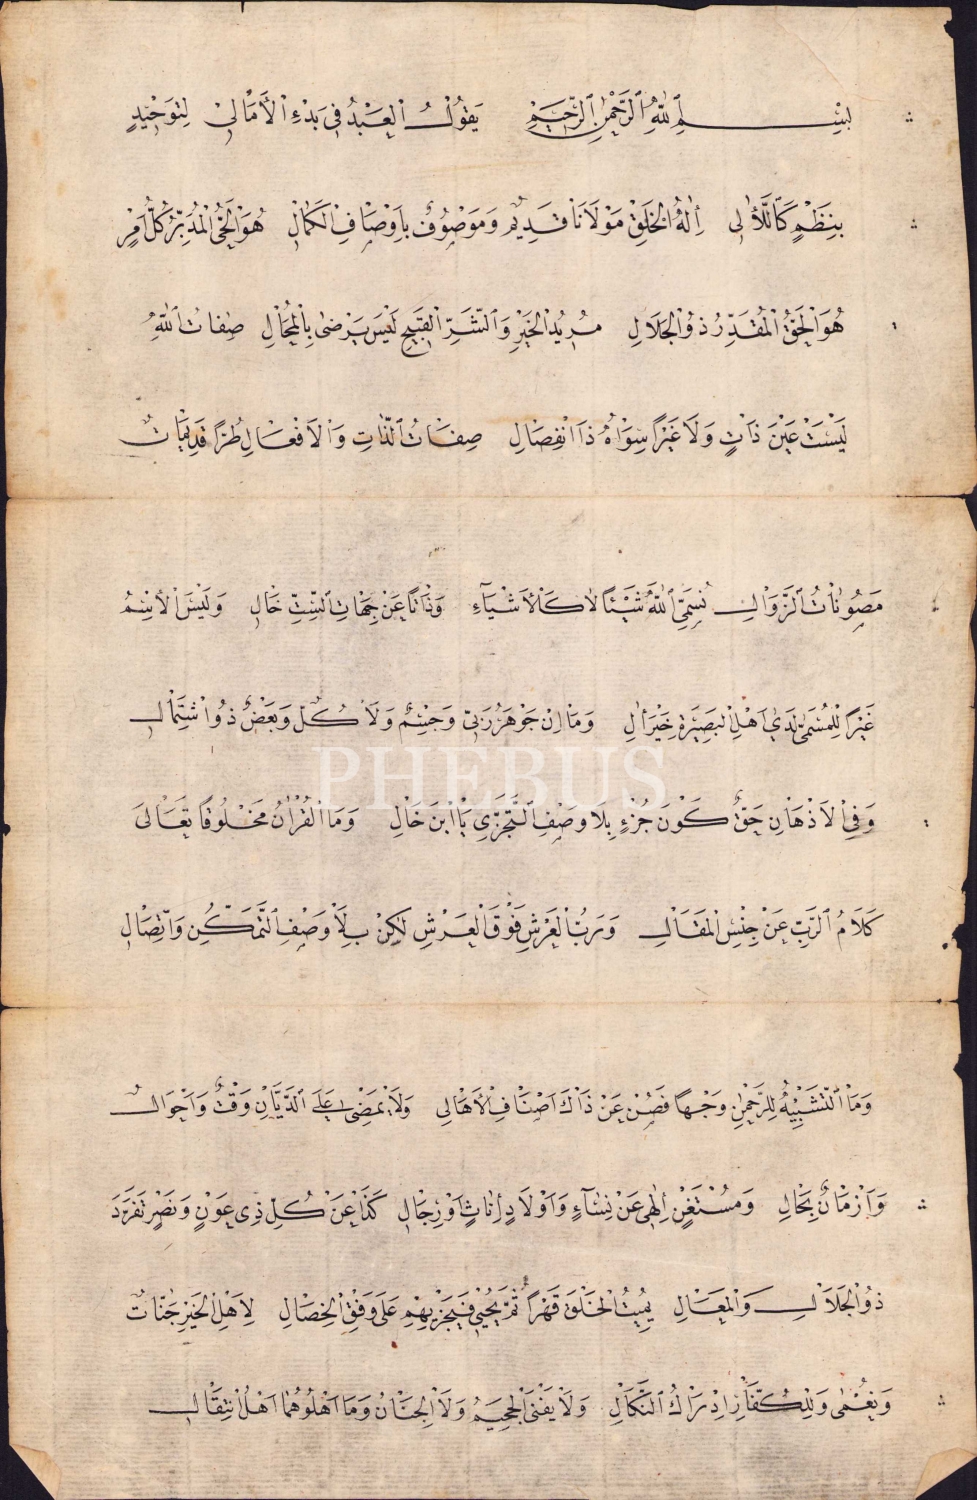 بِسْمِ اللّٰهِ الرَّحْمٰنِ الرَّحِيمِ يَقُولُ الْعَبْدُ فِي بَدْءِ الْأَمَالِي لِتَوْحِيدٍ
بِنَظْمٍ كَاللَّآلِى إِلٰهُ الْخَلْقِ مَوْلَانَا قَدِيمٌ وَمَوْصُوفٌ بِأَوْصَافِ الْكَمَالِ هُوَ الْحَيُّ الْمُدَبِّرُ كُلَّ اَمْرٍ
هُوَ الْحَقُّ الْمُقَدِّرُ ذُو الْجَلَالِ مُرِيدُ الْخَيْرِ وَالشَّرِّ الْقَبِيحِ لَيْسَ يَرْضٰى بِالْمُحَالِ صِفَاتُ اللّٰهِ
لَيْسَتْ عَيْنَ ذَاتٍ وَلَا غَيْرًا سِوَاهُ ذَا انْفِصَالِ صِفَاتُ الذَّاتِ وَالْاَفْعَالِ طُرًّا قَدِيمَاتٌ
مَصُونَاتُ الزَّوَالِ نُسَمِّي اللّٰهَ شَيْئًا لَا كَالْاَشْيَآءِ وَذَاتًا عَنْ جِهَاتِ السِّتِّ خَالِ وَلَيْسَ الْاِسْمُ
غَيْرًا لِلْمُسَمّٰى لَدَى اَهْلِ الْبَصِيرَةِ خَيْرِ اٰلِ وَمَا اِنْ جَوْهَرٌ رَبِّي وَجِسْمٌ وَلَا كُلٌّ وَبَعْضٌ ذُو اشْتِمَالِ
وَفِي الْاَذْهَانِ حَقٌّ كَوْنُ جُزْءٍ بِلَا وَصْفِ التَّجَزِّي يَا ابْنَ خَالِ وَمَا الْقُرْاٰنُ مَخْلُوقًا تَعَالَى
كَلَامُ الرَّبِّ عَنْ جِنْسِ الْمَقَالِ وَرَبُّ الْعَرْشِ فَوْقَ الْعَرْشِ لٰكِنْ بِلَا وَصْفِ التَّمَكُّنِ وَاتِّصَالِ
وَمَا التَّشْبِيهُ لِلرَّحْمٰنِ وَجْهًا فَصُنْ عَنْ ذَاكَ اَصْنَافَ الْاَهَالِى وَلَا يَمْضِى عَلَى الدَّيَّانِ وَقْتٌ وَاَحْوَالٌ
وَاَزْمَانٌ بِحَالِ وَمُسْتَغْنٍ إِلٰهِى عَنْ نِسَآءٍ وَاَوْلَادٍ إِنَاثٍ اَوْ رِجَالِ كَذَا عَنْ كُلِّ ذِى عَوْنٍ وَنَصْرٍ تَفَرَّدَ
ذُو الْجَلَالِ وَالْمَعَالِ يُمِيتُ الْخَلْقَ قَهْرًا ثُمَّ يُحْيِي فَيَجْزِيهِمْ عَلَى وَفْقِ الْخِصَالِ لِاَهْلِ الْخَيْرِ جَنَّاتٌ
وَنُعْمٰى وَلِلْكُفَّارِ اِدْرَاكُ النَّكَالِ وَلَا يَفْنَى الْجَحِيمُ وَلَا الْجِنَانُ وَمَا اَهْلُوهُمَا اَهْلُ انْتِقَالِ
PHEBUS